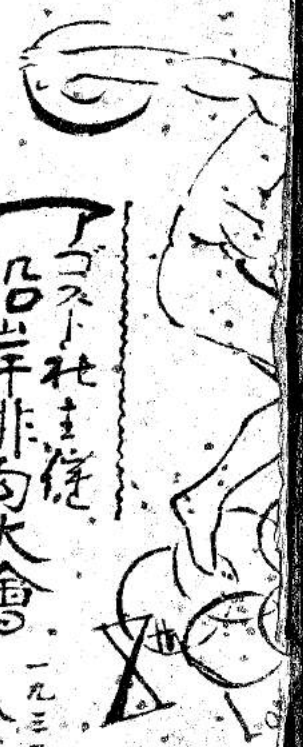 アゴスト社主催
沿岸俳句大會
一九三